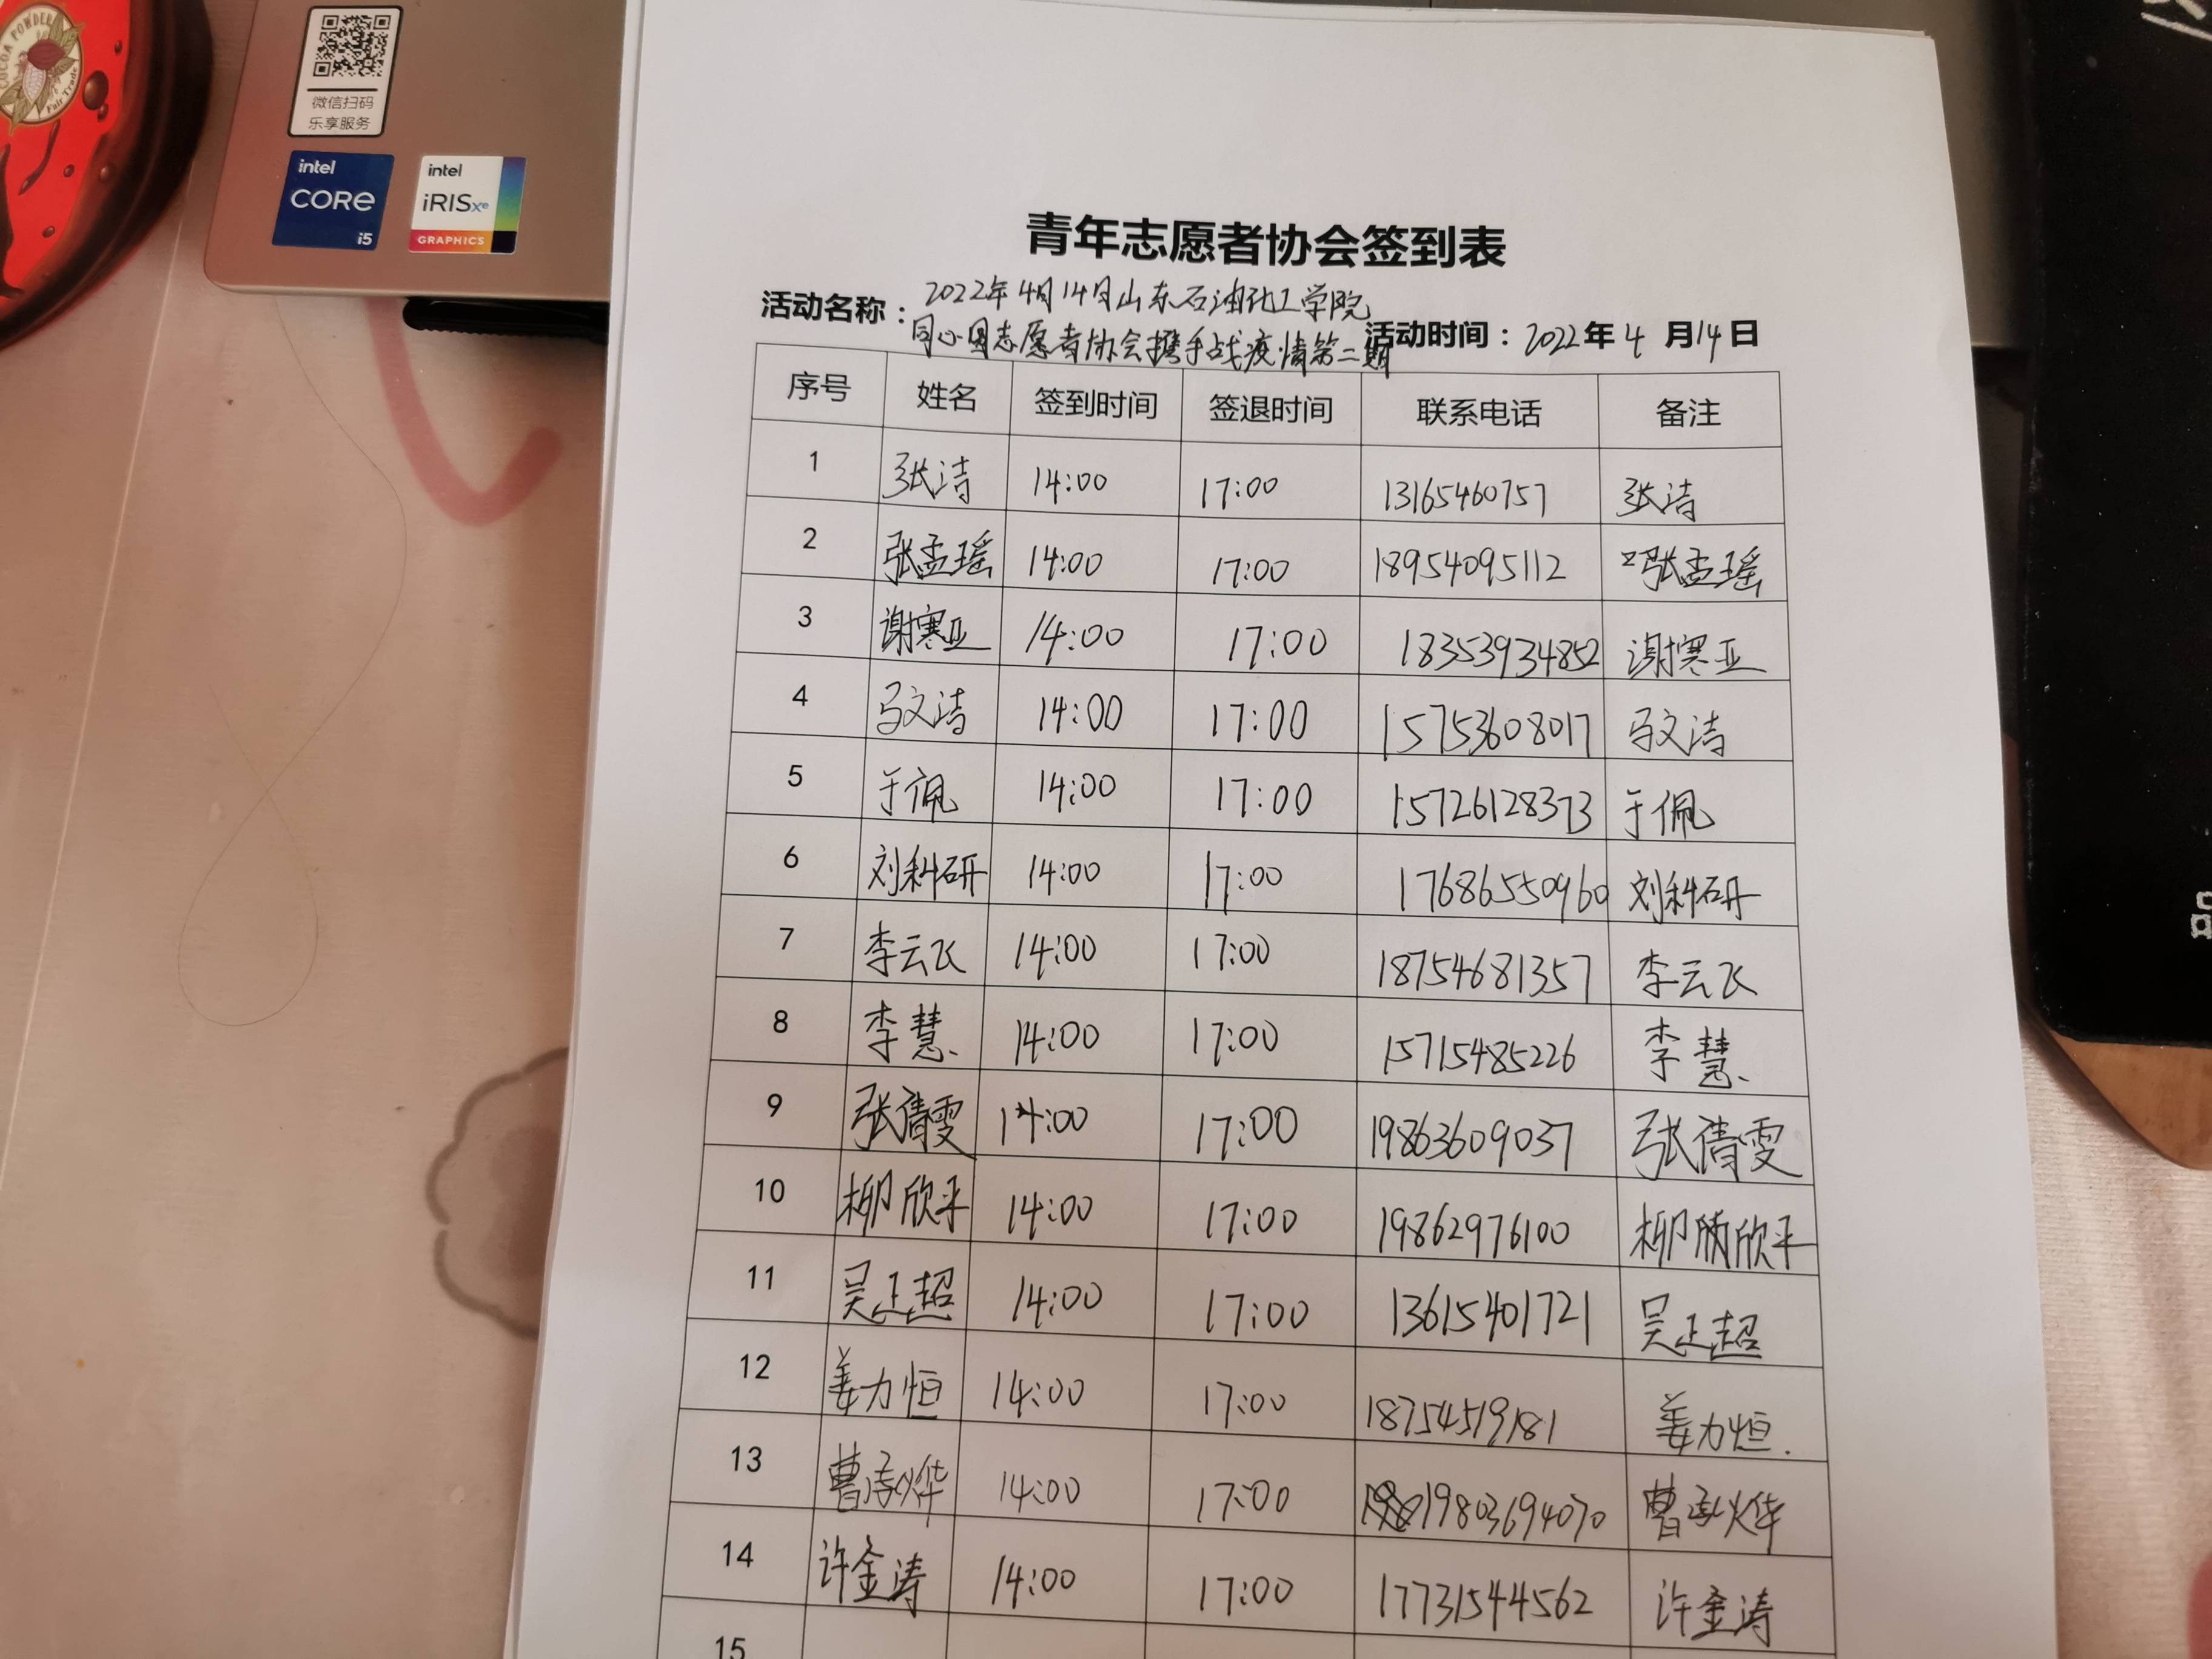 COCOA POWDER
Fair Trade
微信扫码
乐享服务
intel
CORE
i5
intel
iRIS Xe
GRAPHICS
青年志愿者协会签到表
活动名称： 2022年4月14日山东石油化工学院
同心圆志愿者协会携手战疫情第二期 活动时间：2022年4月14日
序号 姓名 签到时间 签退时间 联系电话 备注
1 张洁 14:00 17:00 13165460757 张洁
2 张孟瑶 14:00 17:00 18954095112 张孟瑶
3 谢寒亚 14:00 17:00 18353934852 谢寒亚
4 马文洁 14:00 17:00 15753608017 马文洁
5 于佩 14:00 17:00 15726128373 于佩
6 刘科研 14:00 17:00 17686550960 刘科研
7 李云飞 14:00 17:00 18754681357 李云飞
8 李慧 14:00 17:00 15715485226 李慧
9 张倩雯 14:00 17:00 19863609037 张倩雯
10 柳欣平 14:00 17:00 19862976100 柳欣平
11 吴正超 14:00 17:00 13615401721 吴正超
12 姜力恒 14:00 17:00 18754519181 姜力恒.
13 曹 14:00 17:00 19803694070 曹
14 许金涛 14:00 17:00 17731544562 许金涛
15
品